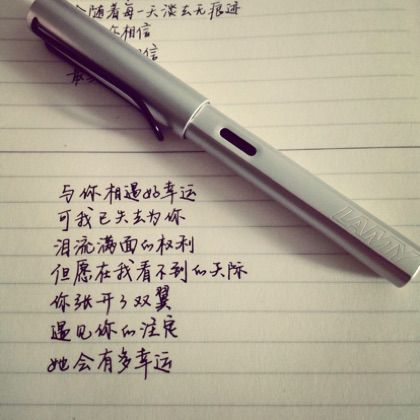 会随着每一天淡去无痕迹
相信
信
与你相遇好幸运
可我已失去为你
泪流满面的权利
但愿在我看不到的天际
你张开了双翼
遇见你的注定
她会有多幸运
LAMY